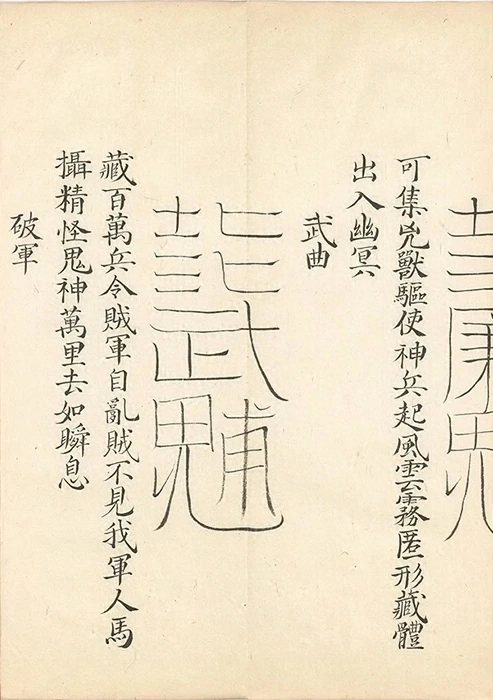 可集兇獸驅使神兵起風雲霧匿形藏體
出入幽冥
武曲
藏百萬兵令賊軍自亂賊不見我軍人馬
攝精怪鬼神萬里去如瞬息
破軍